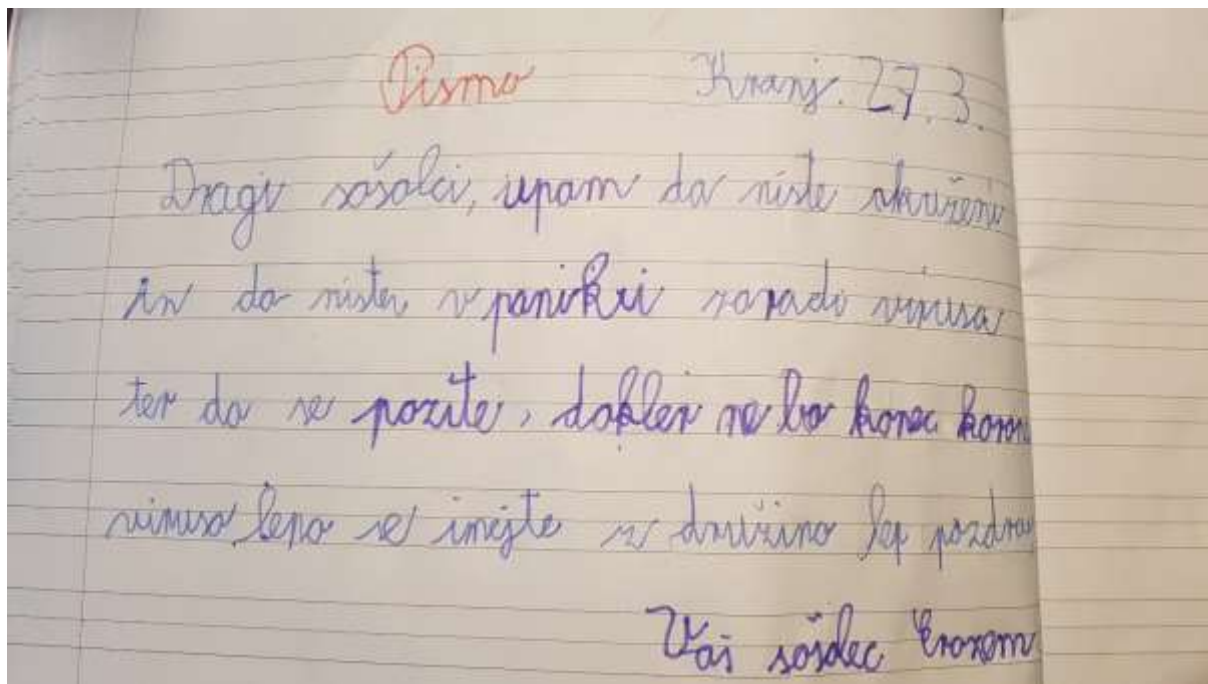 Pismo Kranj. 27. 3.
Dragi sošolci, upam da niste okuženi
in da niste v panikki zaradi virusa
ter da se pazite, dokler ne bo konec korona
virusa lepo se imejte z družino lep pozdrav
Vaš sošolec Erazem